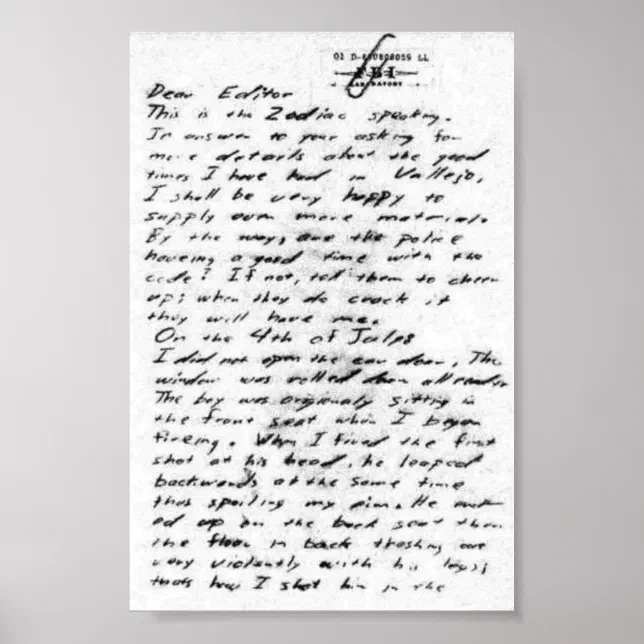 01 D-6 0808059 LL
FBI
LABORATORY
Dear Editor
This is the Zodiac speaking.
In answer to your asking for
more details about the good
times I have had in Vallejo,
I shall be very happy to
supply even more material.
By the way, are the police
haveing a good time with the
code? If not, tell them to cheer
up; when they do crack it
they will have me.
On the 4th of July:
I did not open the car door, The
window was rolled down all ready
The boy was origionaly sitting in
the front seat when I began
fireing. When I fired the first
shot at his head, he leaped
backwards at the same time
thus spoiling my aim. He end
ed up on the back seat then
the floor in back thashing out
very violently with his legs;
thats how I shot him in the